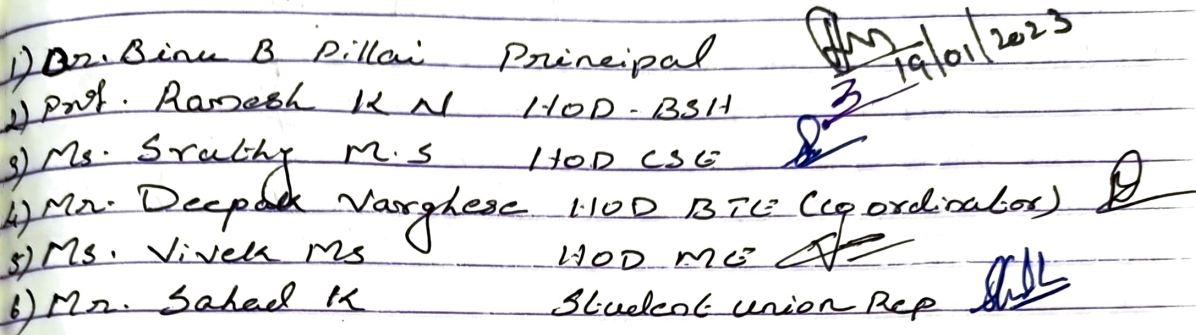 1) Dr. Binu B Pillai Principal 19/01/2023
2) Prof. Ramesh K N HOD - BSH
3) Ms. Srathy M.S HOD CSE
4) Mr. Deepak Varghese HOD BTE (Coordinator)
5) Ms. Vivek Ms HOD ME
6) Mr. Sahad K Student union Rep